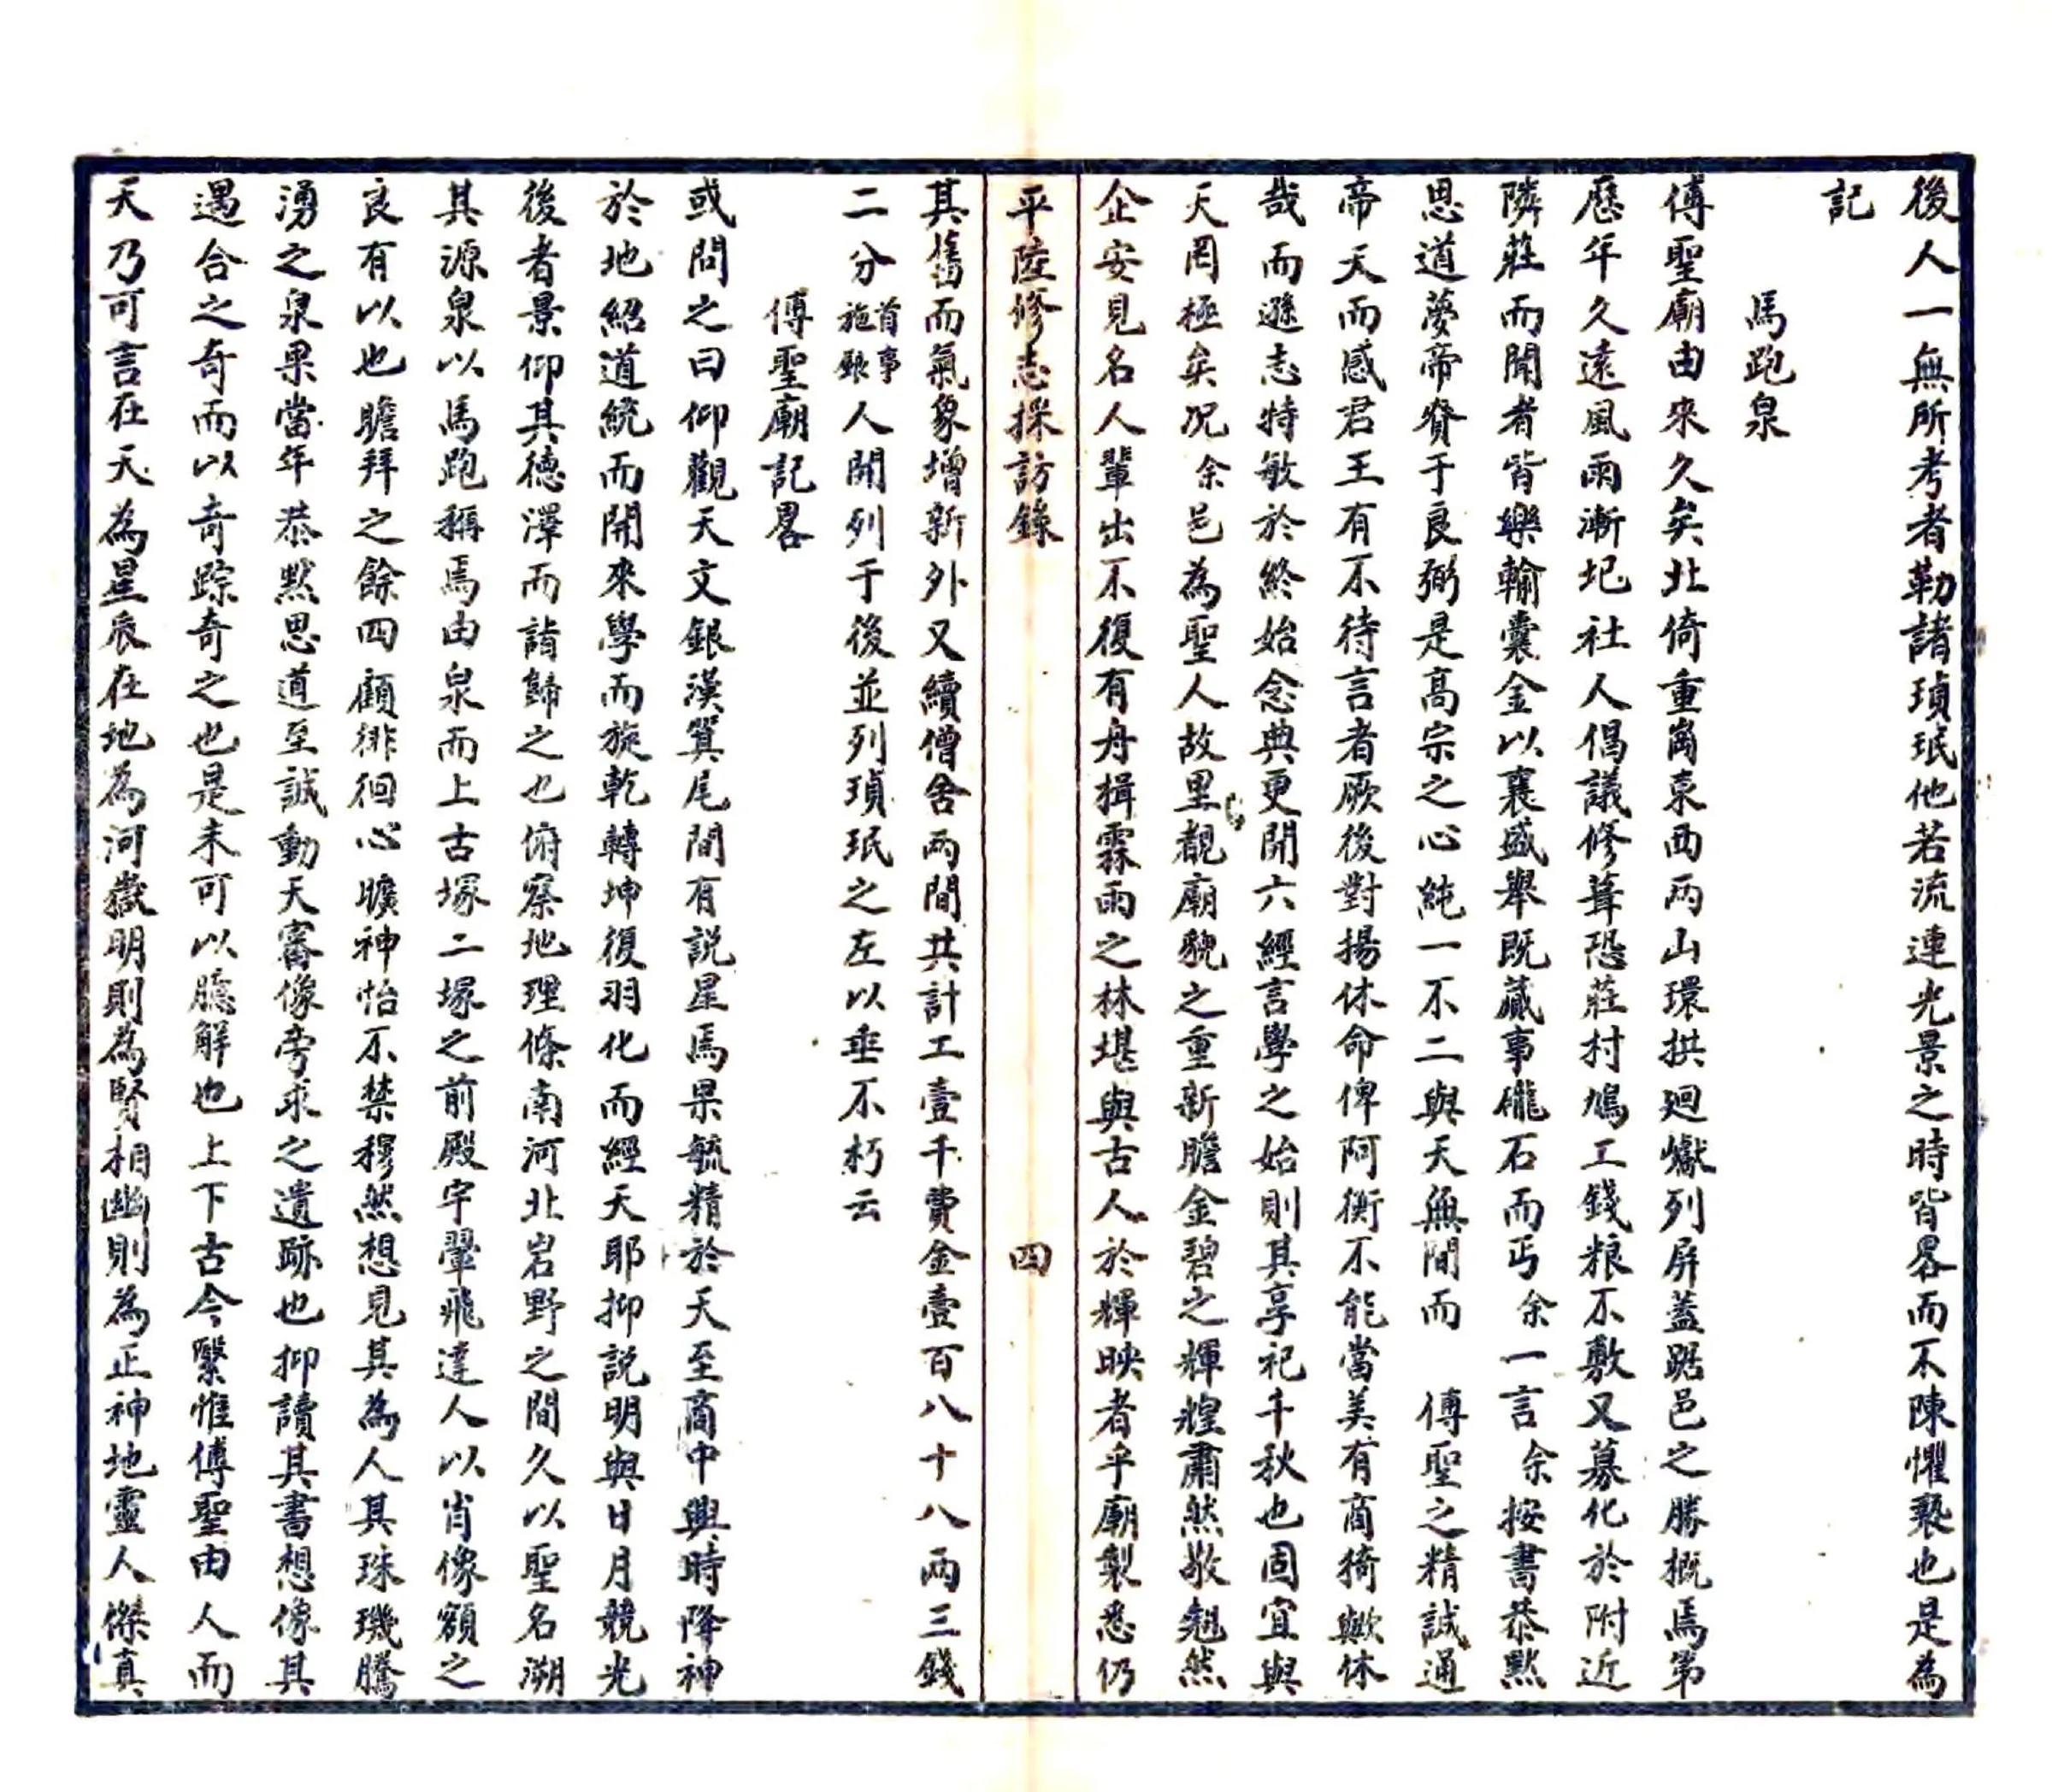 後人一無所考者勒諸瑱珉他若流連光景之時皆畧而不陳懼褻也是為
記
馬跑泉
傅聖廟由來久矣北倚重崗東西兩山環拱廻巘列屏蓋踞邑之勝概焉第
歷年久遠風雨漸圮社人倡議修葺恐莊村鳩工錢粮不敷又募化於附近
隣莊而聞者皆樂輸囊金以襄盛舉既蕆事礲石而丐余一言余按書恭默
思道夢帝賚于良弼是高宗之心純一不二與天無間而　傅聖之精誠通
帝天而感君王有不待言者厥後對揚休命俾阿衡不能當美有商猗歟休
哉而遜志特敏於終始念典更開六經言學之始則其享祀千秋也固宜與
天罔極矣况余邑為聖人故里覩廟貌之重新瞻金碧之輝煌肅然敬翹然
企安見名人輩出不復有舟揖霖雨之林堪與古人於輝映者乎廟製悉仍
平陸修志採訪錄
四
其舊而氣象增新外又續僧舍兩間共計工壹千費金壹百八十八兩三錢
二分首事施銀人開列于後並列瑱珉之左以垂不朽云
傅聖廟記畧
或問之曰仰觀天文銀漢箕尾間有説星焉果毓精於天至商中興時降神
於地紹道統而開來學而旋乾轉坤復羽化而經天耶抑説明與日月競光
後者景仰其德澤而詣歸之也俯察地理條南河北岩野之間久以聖名溯
其源泉以馬跑稱焉由泉而上古塚二塚之前殿宇翬飛達人以肖像額之
良有以也瞻拜之餘四顧徘徊心曠神怡不禁穆然想見其為人其珠璣騰
湧之泉果當年恭默思道至誠動天審像旁求之遺跡也抑讀其書想像其
遇合之奇而以奇踪奇之也是未可以臆解也上下古今繄惟傅聖由人而
天乃可言在天為星辰在地為河嶽明則為賢相幽則為正神地靈人傑真